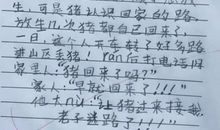 生,可是猪认识回家的路,
放生几次猪都自己回来了,
一日,这个人开车转了好多路
进山区丢猪!ran后打电话问
家里人:"猪回来了吗?"
家人:"早就回来了!!!
他大叫:"让猪过来接我,
老子迷路了!!!"